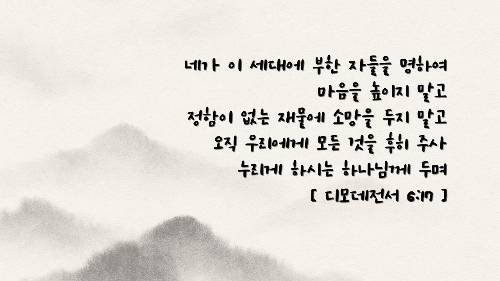 네가 이 세대에 부한 자들을 명하여
마음을 높이지 말고
정함이 없는 재물에 소망을 두지 말고
오직 우리에게 모든 것을 후히 주사
누리게 하시는 하나님께 두며
[ 디모데전서 6:17 ]